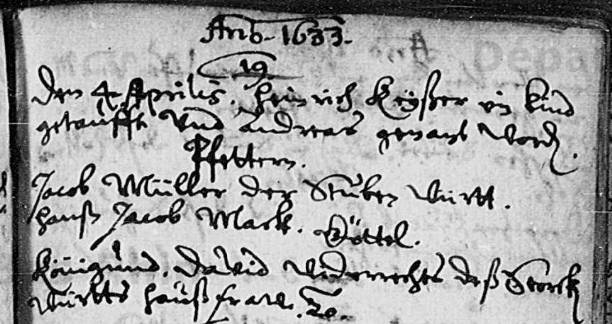 Anno 1633.
19.
Den 4 Aprilis. Heinrich Keÿßer ein Kind
getaufft Und Andreas genant word.
Pfettern.
Jacob Müller der Stuben Württ.
Hanß Jacob Mark. Göttel.
Königund, David Widerrechts deß Storck
Württs haußfraw.